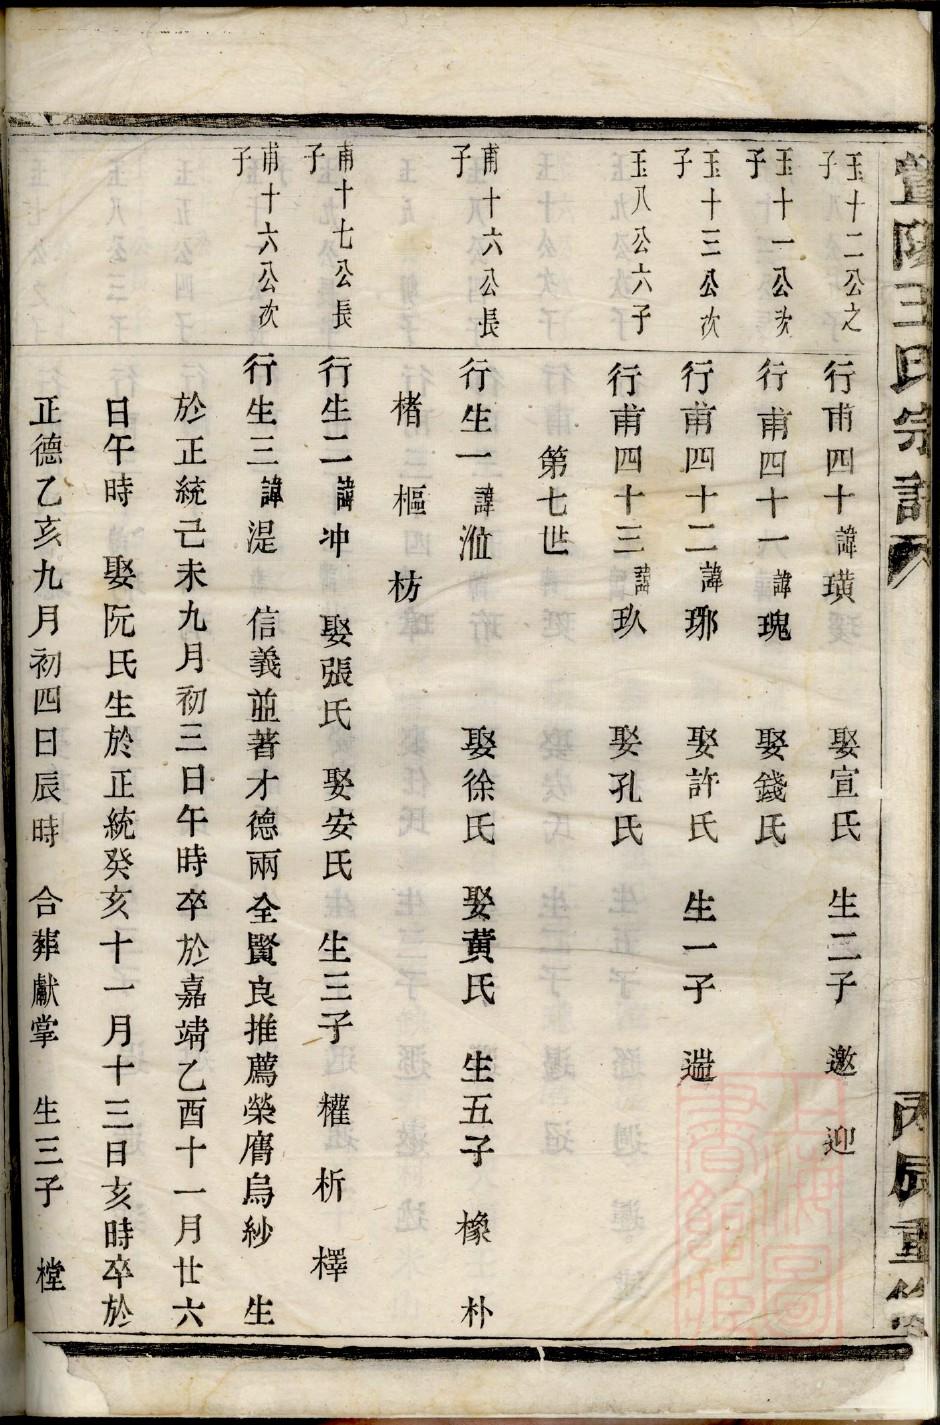 暨陽王氏宗譜
丙辰重修
玉十二公之子
行甫四十諱璜 娶宣氏 生二子 邀 迎
玉十一公次子
行甫四十一諱瑰 娶錢氏
玉十三公次子
行甫四十二諱琊 娶許氏 生一子 遄
玉八公六子
行甫四十三諱玖 娶孔氏
第七世
甫十六公長子
行生一諱 娶徐氏 娶黃氏 生五子 橡 朴
楮 樞 枋
甫十七公長子
行生二諱冲 娶張氏 娶安氏 生三子 權 析 檡
甫十六公次子
行生三諱湜 信義並著才德兩全賢良推薦榮膺烏紗 生
於正統己未九月初三日午時卒於嘉靖乙酉十一月廿六
日午時 娶阮氏生於正統癸亥十一月十三日亥時卒於
正德乙亥九月初四日辰時 合葬獻掌 生三子 樘